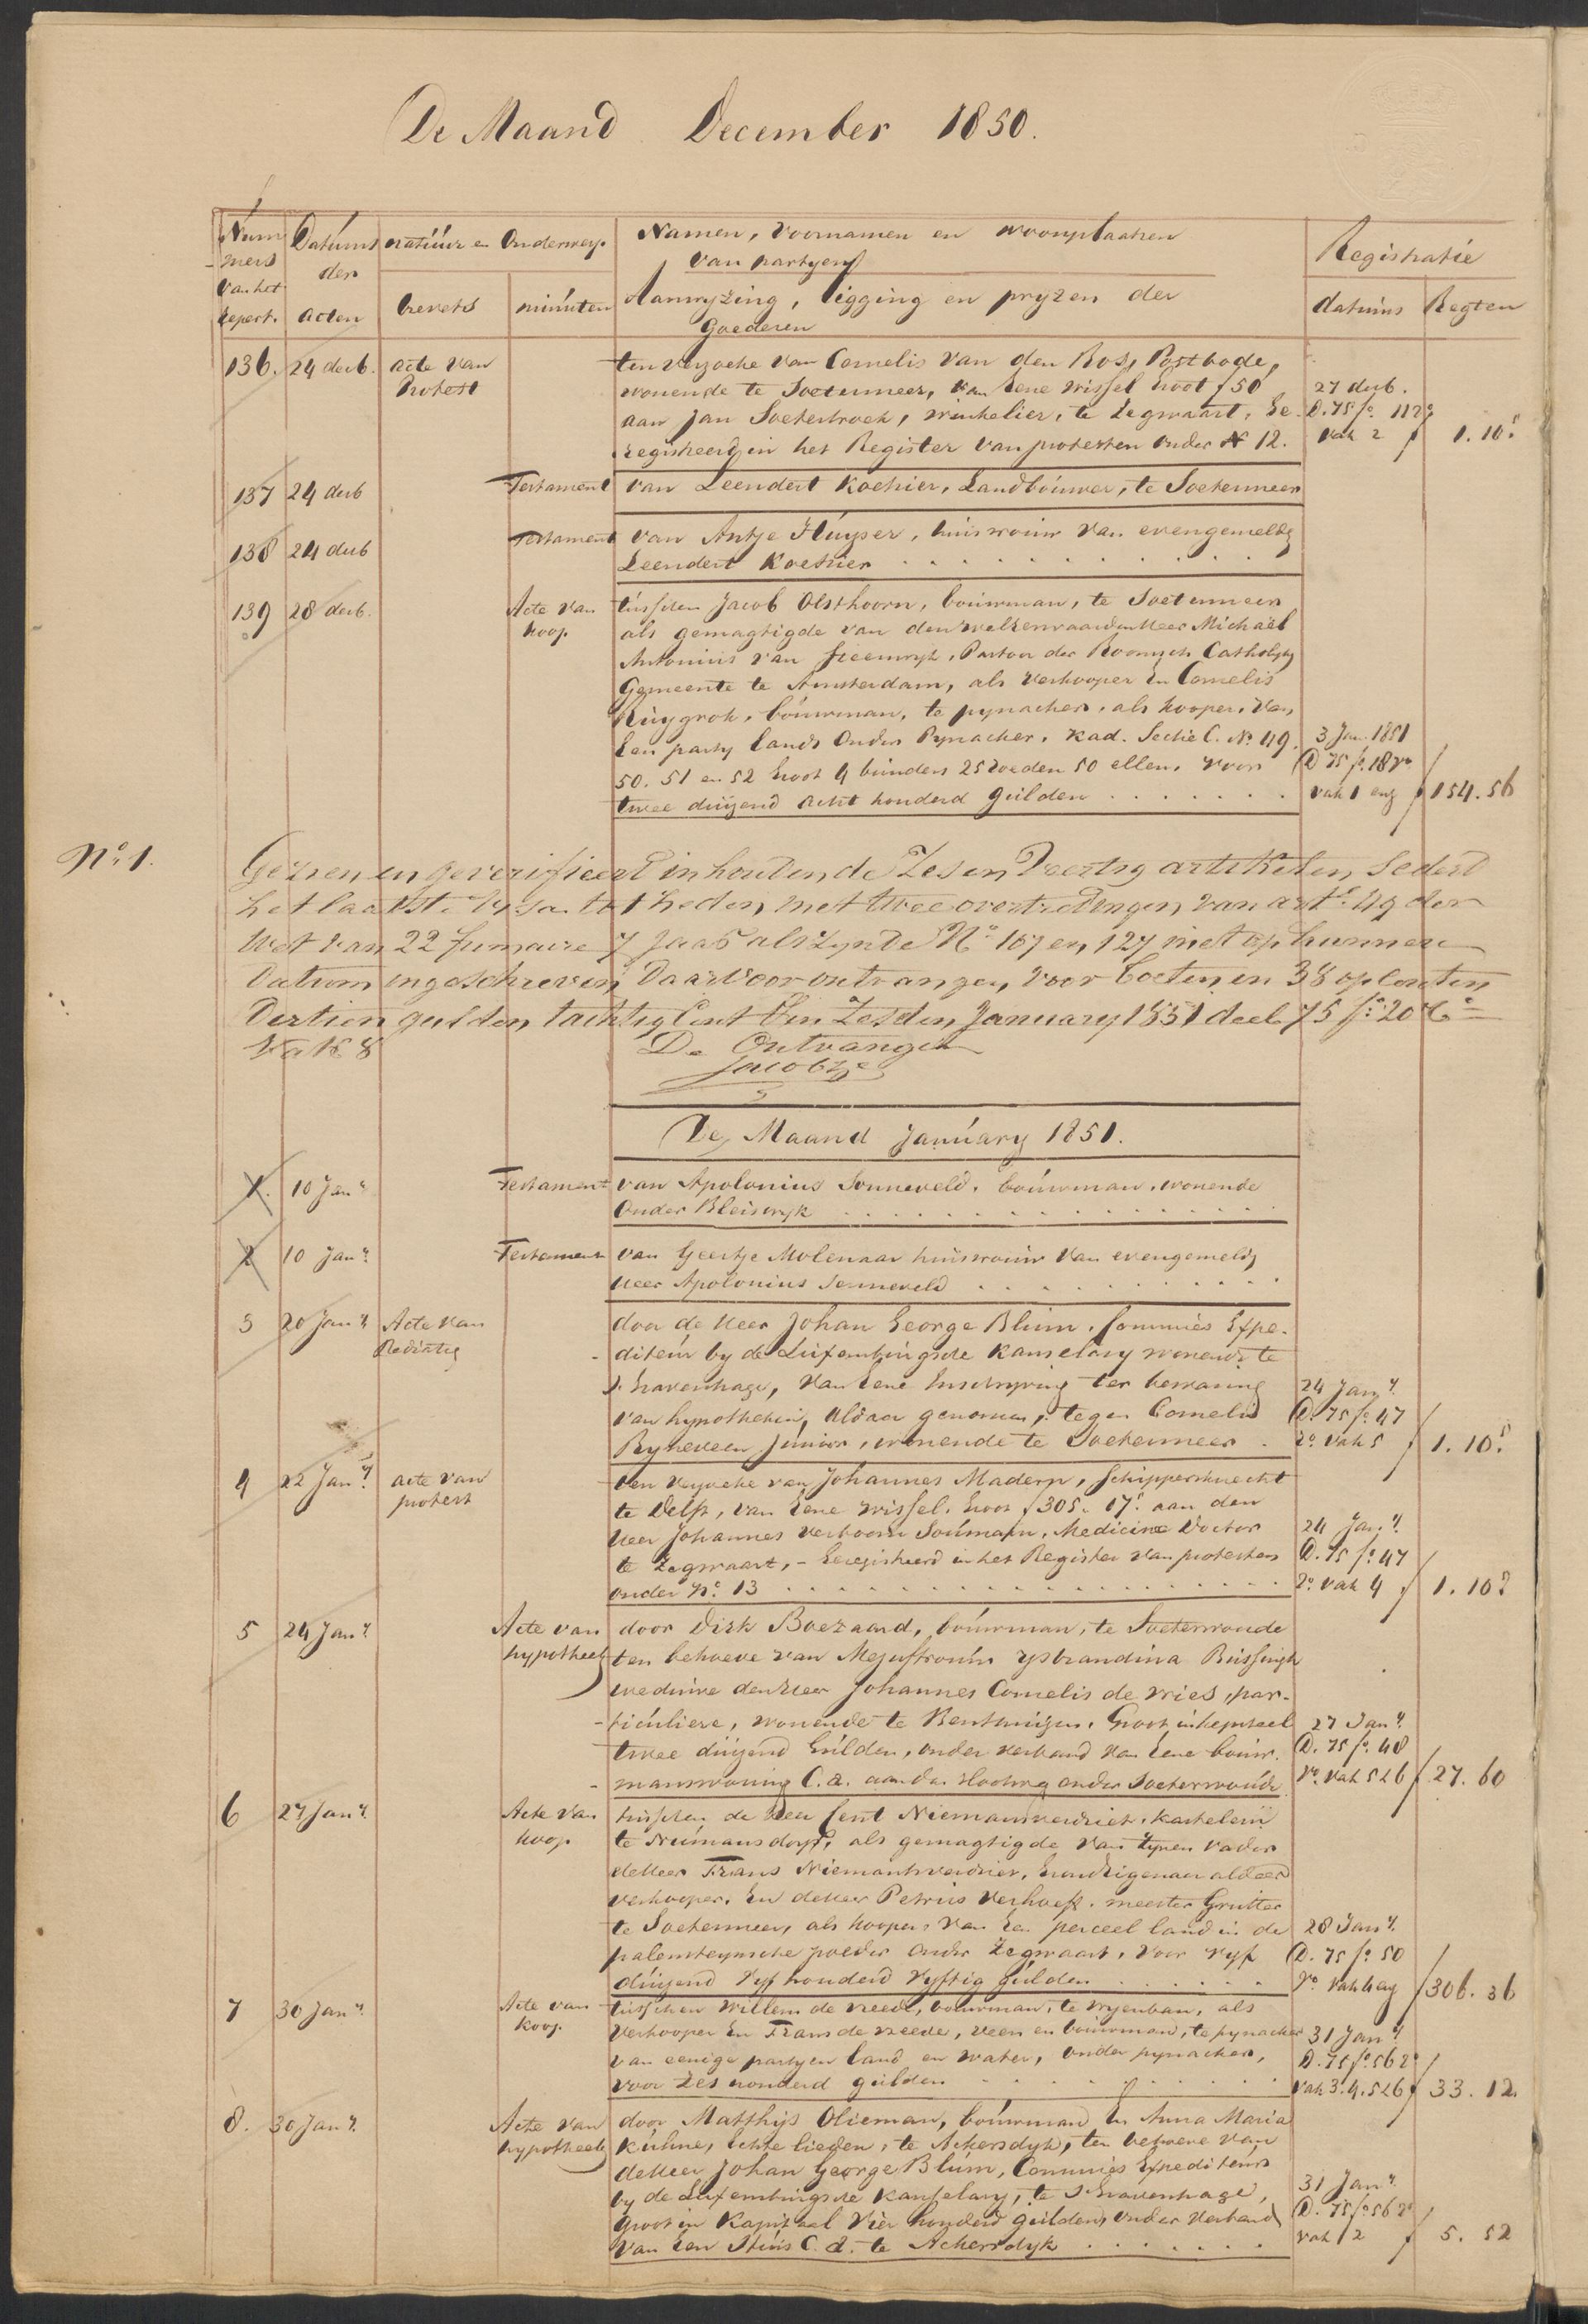 De Maand December 1850.
Num Datums natuur en Onderwerp. Namen, Voornamen en woonplaatsen Registratie
mers der van partyen
van het Aanwyzing, ligging en pryzen der
Repert. acten brevets minuten Goederen datums Regten
136. 24 decb. acte van ten verzoeke van Cornelis van den Bos, Postbode,
Protest wonende te Soetermeer, van eene wissel groot ƒ 50 27 decb.
aan Jan Soeterbroek, winkelier, te Zegwaart, Ge- D. 75 fo. 112
registreerd in het Register van protesten onder No 12. vak 2 ƒ 1.10.5
137 24 decb Testament van Leendert Koehier, Landbouwer, te Soetermeer
138 24 decb Testament van Antje Huyser, huisvrouw van evengemelde
Leendert Koethier
139 28 decb. Acte van tusschen Jacob Olsthoorn, bouwman, te Soetermeer
koop. als gemagtigde van den weleerwaarden Heer Michaël
Antonius van Steenwyk, Pastoor der Roomsch Catholyke
Gemeente te Amsterdam, als Verkooper En Cornelis
Ruygrok, bouwman, te pynacker, als kooper, van
Een party lands onder Pynacker, Kad. Sectie C. No 49. 3 Jan. 1851
50. 51 en 52 Groot 4 bunders 25 roeden 50 ellen, voor D 75 fo. 18 vo
twee duizend acht honderd gulden vak 1 enz ƒ 154.56
No. 1. Gezien en geverifieerd inhoudende Zes en Veertig artikelen, sederd
het laatste Visa tot heden, met twee overtredingen van art. 49 der
Wet van 22 frimaire 7 Jaar als zynde No 107 en 127 niet op hunnen
Datum ingeschreven Daarvoor ontvangen voor boeten en 38 opcenten
Dertien gulden tachtig Cent Den Zesden January 1851 deel 75 fo 20
Vak 8 De Ontvanger
Jacobze
De Maand January 1851.
1. 10 Jany. Testament van Apolonius Sonneveld, bouwman, wonende
Onder Bleiswyk
2 10 Jany. Testament van Geertje Molenaar huisvrouw van evengemelde
Heer Apolonius Sonneveld
3 20 Jany. Acte van door de Heer Johan George Blum, Commies Expe-
Radiatie diteur by de Luxemburgsche Kanselary wonende te
s Gravenhage, van Eene Inschryving ter bewaring 24 Jany.
van hypotheken, aldaar genomen, tegen Cornelis D. 75 fo. 47
Ryneveen Junior, wonende te Soetermeer. vo. vak 5 ƒ 1.10.5
4 22 Jany. acte van ten verzoeke van Johannes Madern, Schippersknecht
protest te Delft, van Eene wissel, Groot ƒ 305. 17.5 aan den
Heer Johannes Verboom Soumann, Medicine Doctor 24 Jany.
te Zegwaart, - Geregistreerd in het Register van protesten D. 75 fo. 47
onder No. 13 vo. vak 4 ƒ 1.10.5
5 24 Jany. Acte van door Dirk Boezaard, bouwman, te Soeterwoude
hypotheek ten behoeve van Mejuffrouw Ysbrandina Bussingh
weduwe den Heer Johannes Cornelis de Vries, par-
ticuliere, wonende te Benthuizen, Groot in kapitaal 27 Jany.
twee duizend Gulden, onder verband van Eene bouw- D. 75 fo. 48
manswoning C.a. aan den Hoofdweg onder Soeterwoude vo. vak 5 26 ƒ 27.60
6 27 Jany. Acte van tusschen de Heer Cent Niemansverdriet, Kastelein
koop te Numansdorp, als gemagtigde van zynen vader
de Heer Frans Niemantsverdriet, Grondeigenaar aldaar
verkooper, En de Heer Petrus Verhoeff, meester Grutter
te Soetermeer, als kooper, van Een perceel land in de 28 Jany.
palensteynsche polder onder Zegwaart, voor vyf D. 75 fo. 50
duizend Vyf honderd Vyftig Gulden vo. vak 4 enz ƒ 306.36
7 30 Jany. Acte van tusschen Willem de Vreede, bouwman, te Vryenban, als
koop. Verkooper En Frans de Vreede, veen en bouwman, te pynacker 31 Jany.
van eenige partyen land en water, onder pynacker, D. 75 fo. 56 vo
voor Zes honderd gulden vak 3.4.5 26 ƒ 33.12.
8. 30 Jany. Acte van door Matthijs Olieman, bouwman En Anna Maria
hypotheek Kuhne, Echte lieden, te Ackersdyk, ten behoeve van
de Heer Johan George Blum, Commies Expediteur
by de Luxemburgsche Kanselary, te s Gravenhage, 31 Jany.
Groot in Kapitaal Vier honderd Guldens onder Verband D. 75 fo. 56 vo
van Een Huis C.a. te Ackersdyk vak 1 2 ƒ 5.52